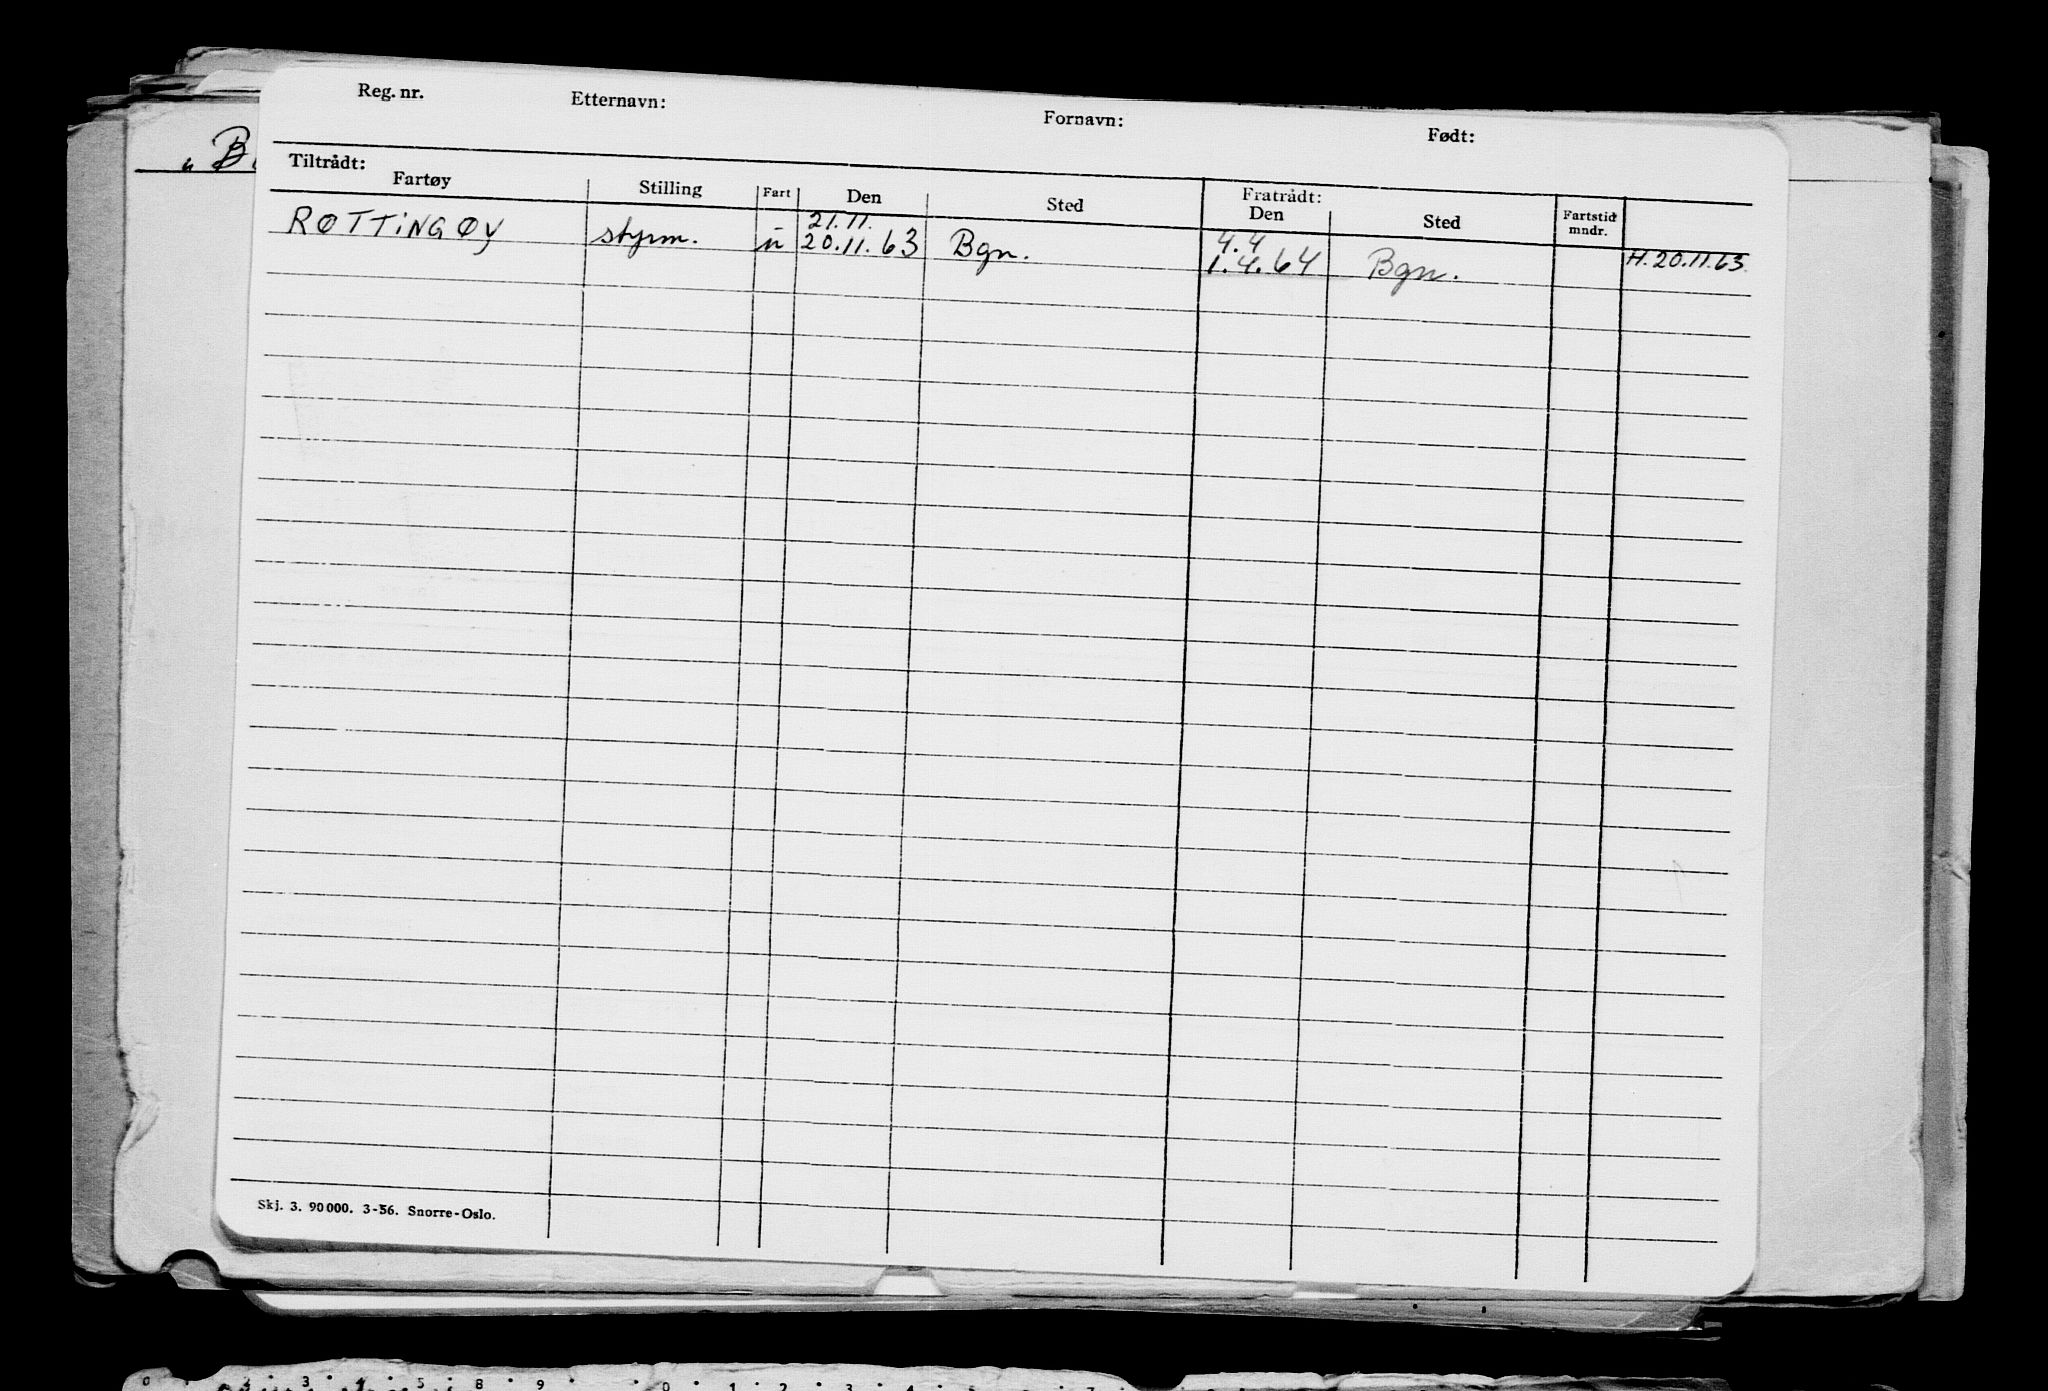 Reg. nr. Etternavn: Fornavn: Født:
Tiltrådt: Fratrådt:
Fartøy Stilling Fart Den Sted Den Sted Fartstid mndr.
21.11. 4.4
RØTTINGØY styrm. u 20.11.63 Bgn. 1.4.64 Bgn. H.20.11.63.
Skj. 3. 90 000. 3-56. Snorre-Oslo.